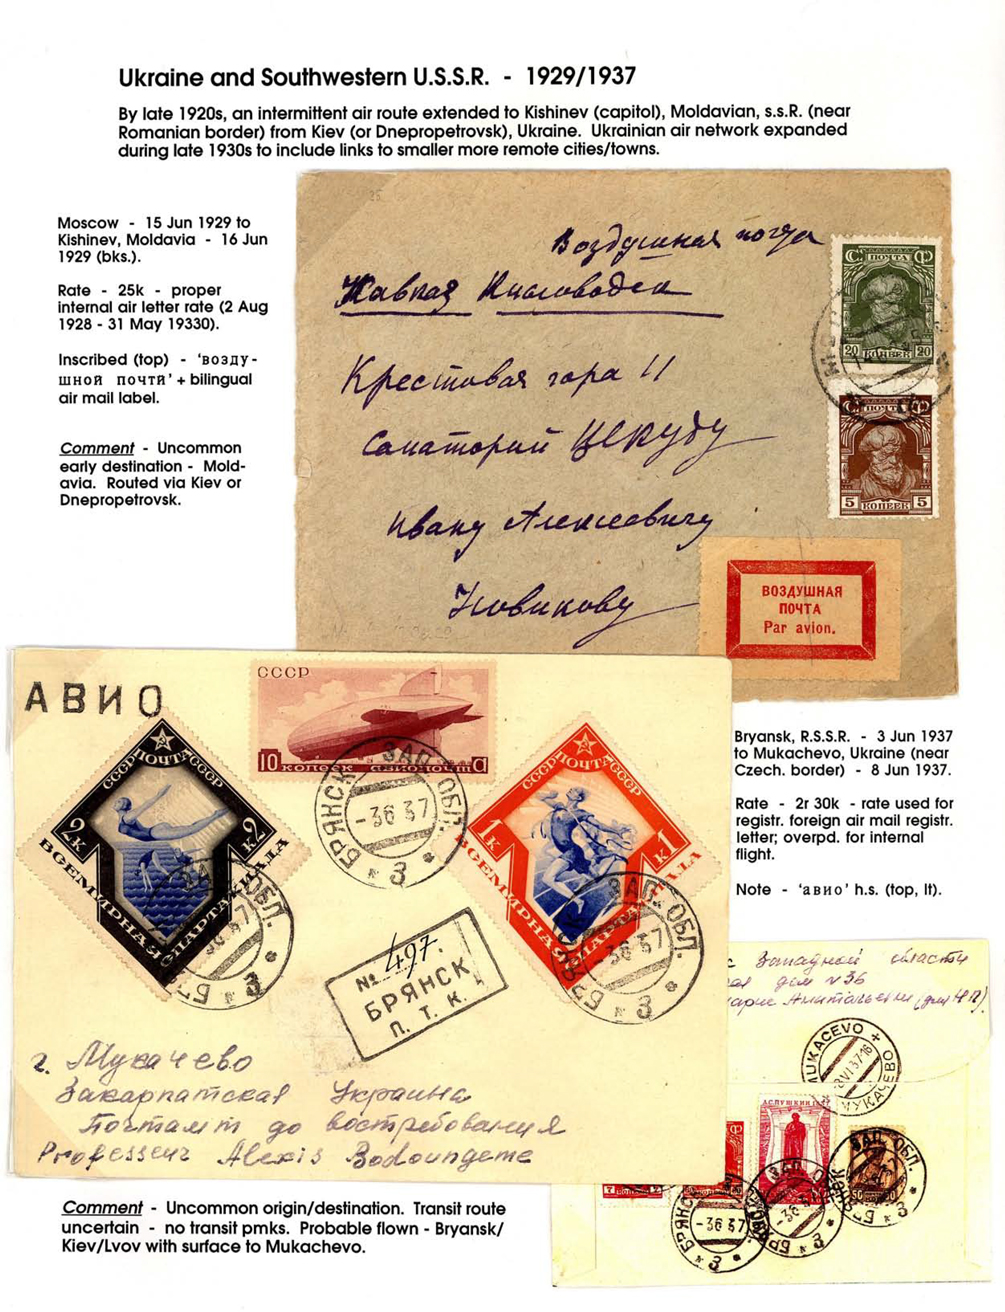 Ukraine and Southwestern U.S.S.R. - 1929/1937
By late 1920s, an intermittent air route extended to Kishinev (capitol), Moldavian, s.s.R. (near
Romanian border) from Kiev (or Dnepropetrovsk), Ukraine. Ukrainian air network expanded
during late 1930s to include links to smaller more remote cities/towns.
Moscow - 15 Jun 1929 to
Kishinev, Moldavia - 16 Jun
1929 (bks.).
Rate - 25k - proper
internal air letter rate (2 Aug
1928 - 31 May 19330).
Inscribed (top) - ‘возду-
шной почти’ + bilingual
air mail label.
Comment - Uncommon
early destination - Mold-
avia. Routed via Kiev or
Dnepropetrovsk.
Воздушная почта
Кавказ Кисловодск
Крестовая гора 11
Санаторий ЦЕКУБУ
Ивану Алексеевичу
Новикову
С ПОЧТА Ф
20 КОПЕЕК 20
С ПОЧТА Ф
5 КОПЕЕК 5
ВОЗДУШНАЯ
ПОЧТА
Par avion.
АВИО
СССР
10 КОПЕЕК АВИОПОЧТА
СССР ПОЧТА СССР
2К К2
ВСЕМИРНАЯ СПАРТАКИАДА
СССР ПОЧТА СССР
1К К1
ВСЕМИРНАЯ СПАРТАКИАДА
БРЯНСК ЗАП. ОБЛ.
-3 6 37
3
БРЯНСК ЗАП. ОБЛ.
-3 6 37
3
БРЯНСК ЗАП. ОБЛ.
-3 6 37
3
№ 497.
БРЯНСК
П. Т. К.
г. Мукачево
Закарпатская Украина
Почтамт до востребования
Professeur Alexis
Bryansk, R.S.S.R. - 3 Jun 1937
to Mukachevo, Ukraine (near
Czech. border) - 8 Jun 1937.
Rate - 2r 30k - rate used for
registr. foreign air mail registr.
letter; overpd. for internal
flight.
Note - ‘авио’ h.s. (top, lt).
Западной области
дом №36
MUKACEVO +
8 VI 37-16
МУКАЧЕВО
А.С.ПУШКИН
50
БРЯНСК ЗАП. ОБЛ.
-3 6 37
3
БРЯНСК ЗАП. ОБЛ.
-3 6 37
3
БРЯНСК ЗАП. ОБЛ.
3
Comment - Uncommon origin/destination. Transit route
uncertain - no transit pmks. Probable flown - Bryansk/
Kiev/Lvov with surface to Mukachevo.